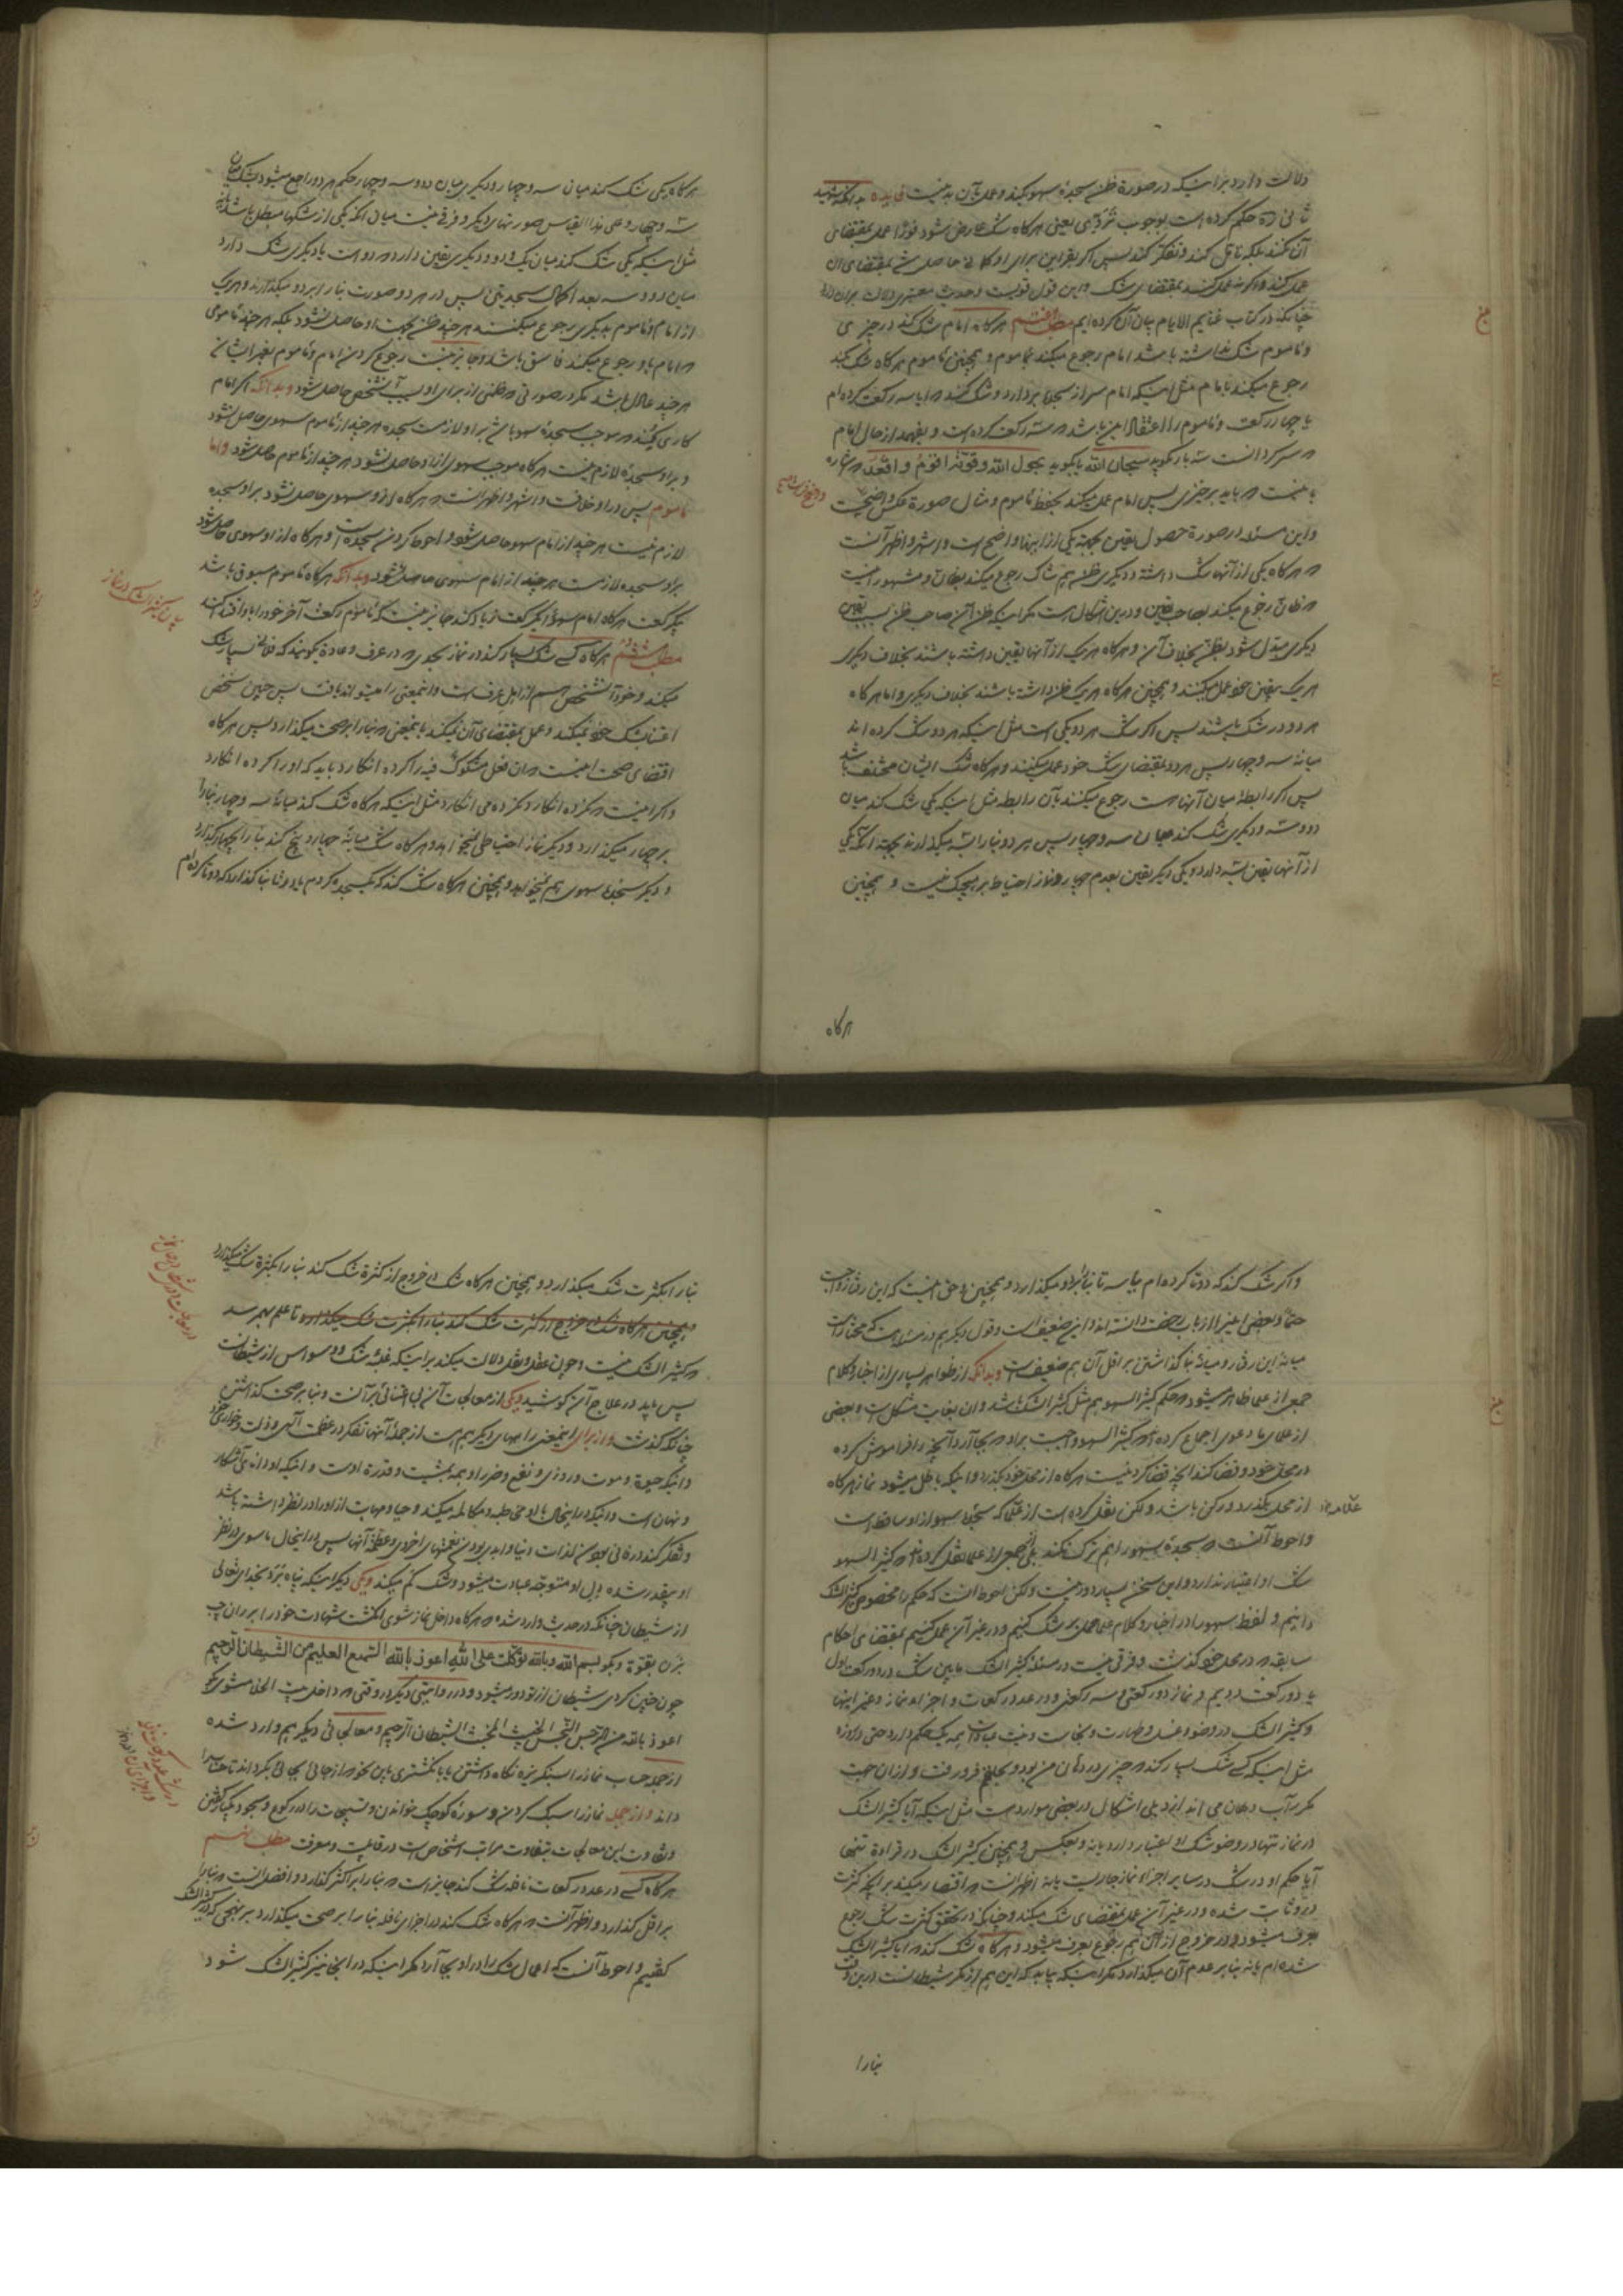 دلالت دارد براینکه در صورة ظن سجدهٔ سهو بکند و عمل بآن بد نیست فایده بدانکه شهید
ثانی ره حکم کرده است بوجوب تروّی یعنی هرگاه شک عارض شود فورا عمل بمقتضای
آن نکند بلکه تأمل کند و تفکر کند پس اگر بقراین برای او گمانی حاصل شد بمقتضای آن
عمل کند و اگر نه عمل کند بمقتضای شک و این قول قویست و حدیث معتبری دلالت بر آن دارد
چنانکه در کتاب غنایم الایام بیان آن کرده‌ایم مطلب هرگاه امام شک کند در چیزی
و مأموم شک نداشته باشد امام رجوع میکند بمأموم و همچنین مأموم هرگاه شک بکند
رجوع میکند بامام مثل اینکه امام سر از سجده بردارد و شک کند که آیا سه رکعت کرده‌ام
یا چهار رکعت و مأموم را اعتقاد این باشد که سه رکعت کرده است و بفهمد از حال امام
که سرگردانست سه بار بگوید سبحان الله یا بگوید بحول الله و قوّته اقوم و اقعد که اشاره
باینست که باید برخیزی پس امام عمل میکند بحفظ مأموم و مثال صورة عکس واضحست
و این مسئله در صورة حصول یقین بجهة یکی از اینها واضح است و اشهر و اظهر آنست
که هرگاه یکی از آنها شک داشته و دیگری ظن هم شاک رجوع میکند بظان و مشهور اینست
که ظان رجوع میکند بصاحب یقین و درین اشکال است مگر اینکه ظن آن صاحب ظن بسبب یقین
دیگری مبدل شود بظن بخلاف آن و هرگاه هر یک از آنها یقین داشته باشند بخلاف دیگری
هر یک بیقین خود عمل میکنند و همچنین هرگاه هر یک ظن داشته باشند بخلاف دیگری و اما هرگاه
هر دو در شک باشند پس اگر شک هر دو یکی است مثل اینکه هر دو شک کرده‌اند
میانه سه و چهار پس هر دو بمقتضای شک خود عمل میکنند و هرگاه شک ایشان مختلف باشد
پس اگر رابطهٔ میان آنها هست رجوع میکنند بآن رابطه مثل اینکه یکی شک کند میان
دو و سه و دیگری شک کند میان سه و چهار پس هر دو بنا را بسه میگذارند بجهة آنکه یکی
از آنها یقین بسه دارد و یکی دیگر یقین بعدم چهار و نماز احتیاط بر هیچیک نیست و همچنین
هرگاه
هرگاه یکی شک کند میان سه و چهار و دیگری میان دو و سه و چهار حکم هر دو راجع میشود بشک میان
سه و چهار و علی هذا القیاس صورتهای دیگر و فرقی نیست میان آنکه یکی از شکها مبطل باشد یا نه
مثل اینکه یکی شک کند میان یک و دو و دیگری یقین دارد که دو است یا دیگری شک دارد
میان دو و سه بعد اکمال سجدتین پس در هر دو صورت بنا را بر دو میگذارند و هر یک
از امام و مأموم بدیگری رجوع میکنند هر چند ظن بجهت او حاصل نشود بلکه هر چند مأمومی
که امام باو رجوع میکند فاسق باشد و جایز نیست رجوع کردن امام و مأموم بغیر ایشان
هر چند عادل باشد مگر در صورتی که ظنی از برای او بسبب آن شخص حاصل شود و بدانکه اگر امام
کاری بکند که موجب سجدهٔ سهو باشد بر او لازمست سجده هر چند از مأموم سهوی حاصل نشود
و بر او سجده لازم نیست هرگاه موجب سهوی از او حاصل نشود هر چند از مأموم حاصل شود و اما
مأموم پس در او خلافست و اشهر و اظهر آنست که هرگاه از او سهوی حاصل نشود بر او سجده
لازم نیست هر چند از امام سهو حاصل شود و احوط کردن سجده است و هرگاه از او سهوی حاصل شود
بر او سجده لازمست هر چند از امام سهوی حاصل نشود و بدانکه هرگاه مأموم مسبوق باشد
بیک رکعت هرگاه امام سهوا یک رکعت زیاد کند جایز نیست که مأموم رکعت آخر خود را باو اقتدا کند
مطلب ششم هرگاه کسی شک بسیار کند در نماز بحدی که در عرف و عادة بگویند که فلانی بسیار شک
میکند و خود آن شخص هم از اهل عرف است و اینمعنی را میتواند یافت پس چنین شخص
اعتنا بشک خود نمیکند و عمل بمقتضای آن نمیکند باینمعنی که بنا را بر صحت میگذارد پس هرگاه
اقتضای صحت اینست که آن فعل مشکوک فیه را کرده انگارد باید که او را کرده انگارد
و اگر اینست که نکرده انگارد نکرده می انگارد مثل اینکه هرگاه شک کند میانه سه و چهار بنا را
بر چهار میگذارد و دیگر نماز احتیاط نمیخواهد و هرگاه شک میانهٔ چهار و پنج کند بنا را بچهار گذارد
و دیگر سجدهٔ سهوی هم نمیخواهد و همچنین هرگاه شک کند که یکسجده کرده‌ام یا دو تا بنا گذارد که دو تا کرده‌ام
و اگر شک کند که دو تا کرده‌ام یا سه تا بنا بر دو میگذارد و همچنین و حق اینست که این رفتار واجبست
میانهٔ این رفتار و میانهٔ بنا گذاشتن بر اقل آن هم ضعیفست و بدانکه از ظواهر بسیاری از اخبار و کلام
جمعی از علما ظاهر میشود که حکم کثیر السهو هم مثل کثیر الشک باشد و آن بغایت مشکل است و بعضی
از علمای ما دعوی اجماع کرده‌اند که کثیر السهو واجبست بر او که بجا آرد آنچه را فراموش کرده
در محل خود و قضا کند آنچه قضا کردنیست هرگاه از محل خود بگذرد و اینکه باطل میشود نماز هرگاه
از محل بگذرد و رکن باشد ولکن نقل کرده است از علامه که سجدهٔ سهو از او ساقط است
و احوط آنست که سجدهٔ سهو را هم ترک نکند بلی جمعی از علما نقل کرده‌اند که کثیر السهو
شک او اعتبار ندارد و این سخن بسیار دور نیست ولکن احوط آنست که حکم را مخصوص کثیر الشک
دانیم و لفظ سهو را در اخبار و کلام علما حمل بر شک کنیم و در غیر آن عمل کنیم بمقتضای احکام
سابقه که در محل خود گذشت و فرقی نیست در مسئلهٔ کثیر الشک مابین شک در دو رکعت اول
یا دو رکعت دویم و نماز دو رکعتی و سه رکعتی و در عدد رکعات و اجزاء نماز و غیر اینها
و کثیر الشک در وضو و غسل و طهارت و نجاست و نیت عبادات همه یک حکم دارد حتی در روزه
مثل اینکه کسی شک بسیار کند که چیزی در دهان من بود و بحلقم فرو رفت و از آن جهت
مکرر آب دهان می اندازد بلی اشکال در بعضی موارد هست مثل اینکه آیا کثیر الشک
در نماز تنها در وضو شک او اعتبار دارد یا نه و بعکس و همچنین کثیر الشک در قراءة تنها
آیا حکم او در شک در سایر اجزاء نماز جاریست یا نه اظهر آنست که اقتصار میکند بر آنچه کثرت
در او ثابت شده و در غیر آن عمل بمقتضای شک میکند و چنانکه در تحقق کثرت شک رجوع
بعرف میشود در خروج از آن هم رجوع بعرف میشود و هرگاه شک کند که آیا کثیر الشک
شده‌ام یا نه بنا بر عدم آن میگذارد مگر اینکه بیابد که این هم از مکر شیطانست درین وقت
بنا را
بنا را بکثرت شک میگذارد و همچنین هرگاه شک در خروج از کثرة شک کند بنا را بکثرة شک میگذارد
همچنین هرگاه شک در خروج از کثرت شک کند بنا را بکثرت شک میگذارد تا علم بهم رسد
که کثیر الشک نیست و چون عقل و نقل دلالت میکند براینکه غلبهٔ شک و وسواس از شیطانست
پس باید در علاج آن کوشید و یکی از معالجات آن بی اعتنائی بر آنست و بنا بر صحت گذاشتن
چنانکه گذشت و از برای اینمعنی راههای دیگر هم هست از جملهٔ آنها تفکر در عظمت آلهی و ذلت و خواری خود
و اینکه حیوة و موت و روزی و نفع و ضرر او همه بمشیت و قدرة اوست و اینکه او دانای آشکار
و نهان است و اینکه در اینحال با او مخاطبه و مکالمه میکند و حیا و مهابت از او را در نظر داشته باشد
و تفکر کند در فانی بودن لذات دنیا و ابدی بودن نعمتهای اخروی و عظمة آنها پس در اینحال ماسوی در نظر
او بیقدر شده دل او متوجه عبادت میشود و شک کم میکند و یکی دیگر اینکه پناه برد بخدای تعالی
از شیطان چنانکه در حدیث وارد شده که هرگاه داخل نماز شوی انگشت شهادت خود را بر ران چپ
بزن بقوة و بگو بسم الله و بالله توکلت علی الله اعوذ بالله السّمیع العلیم من الشّیطان الرّجیم
چون چنین کردی شیطان از تو دور میشود و در روایتی دیگر در وقتی که داخل بیت الخلا میشوی بگو
اعوذ بالله من الرجس النّجس الخبیث المخبث الشیطان الرّجیم و معالجاتی دیگر هم وارد شده
از جمله حساب نماز را بسنگریزه نگاه داشتن یا بانگشتری باین نحو که از جائی بجائی بگرداند تا حساب را
داند و از جمله نماز را سبک کردن و سورهٔ کوچک خواندن و تسبیحات را در رکوع و سجود یکبار گفتن
و تفاوت این معالجات بتفاوت مراتب اشخاص است در قابلیت و معرفت مطلب
هرگاه کسی در عدد رکعات نافله شک کند جایز است که بنا را بر اکثر گذارد و افضل آنست که بنا را
بر اقل گذارد و اظهر آنست که هرگاه شک کند در اجزای نافله بنا را بر صحت میگذارد بر نهجی که در کثیر الشک
گفتیم و احوط آنست که اعمال شک را در او بجا آرد مگر اینکه در اینجا نیز کثیر الشک شود